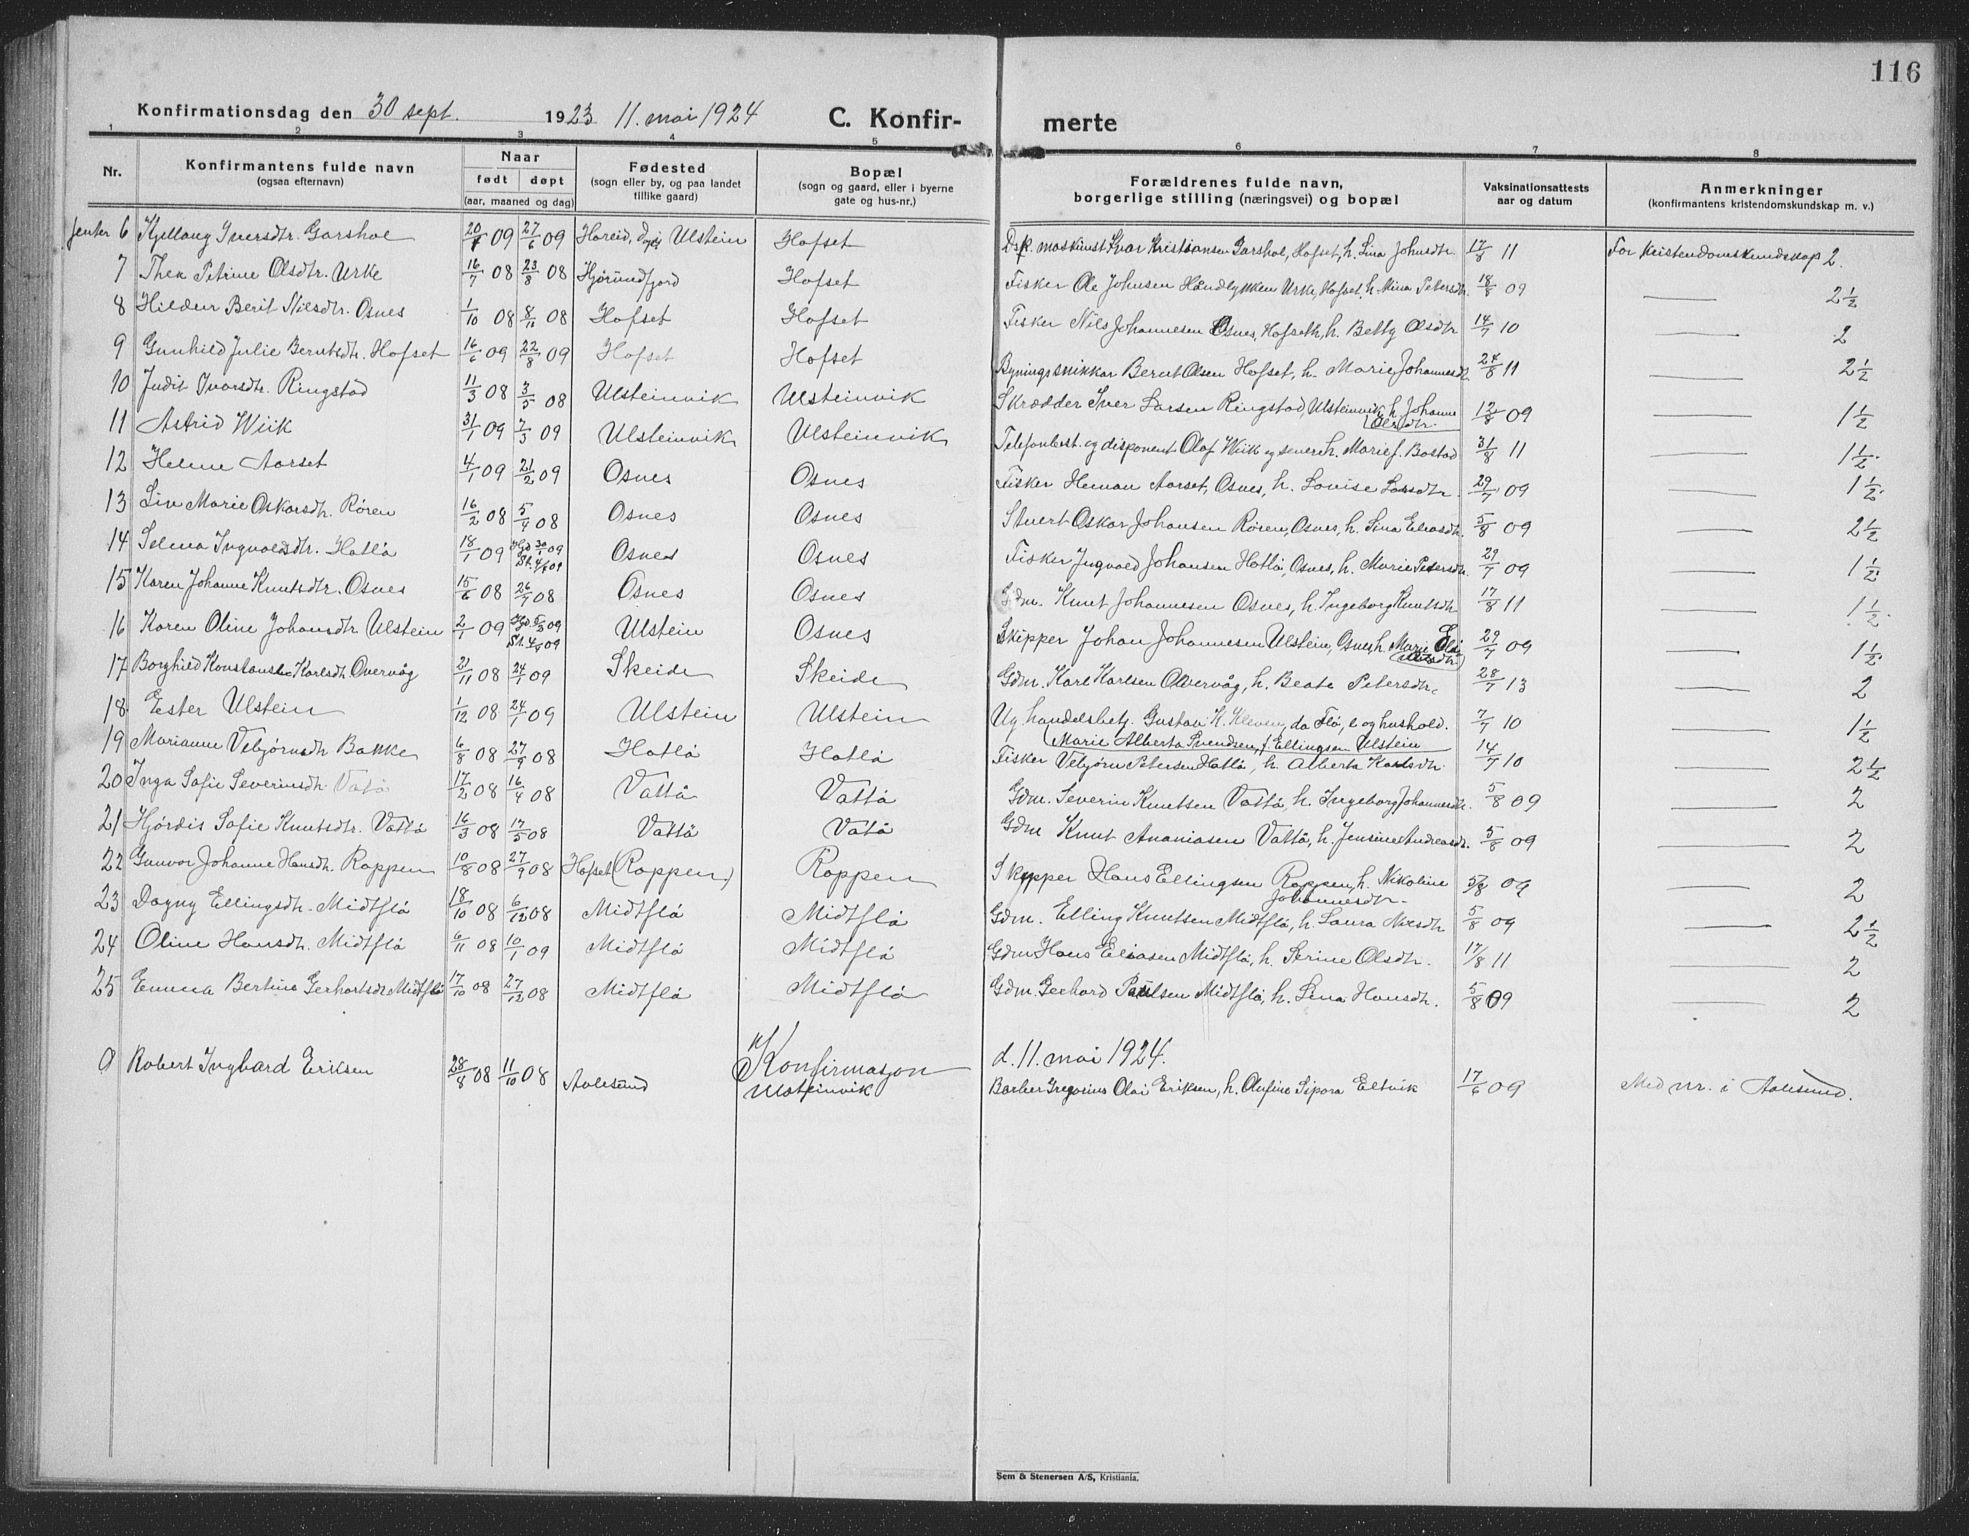 116
Konfirmationsdag den 30 sept. 1923 11. mai 1924 C. Konfir- merte
1 2 3 4 5 6 7 8
Nr. Konfirmantens fulde navn (ogsaa efternavn) Naar født døpt (aar, maaned og dag) Fødested (sogn eller by, og paa landet tillike gaard) Bopæl (sogn og gaard, eller i byerne gate og hus-nr.) Forældrenes fulde navn, borgerlige stilling (næringsvei) og bopæl Vaksinationsattests aar og datum Anmerkninger (konfirmantens kristendomskundskap m. v.)
Jenter 6 Kjellaug Iversdtr. Garshol 20/4 09 27/6 09 Hareid, døpt Ulstein Hofset Dsk. maskinist Ivar Kristiansen Garshol, Hofset, h. Lina Johnsdtr. 17/8 11 For kristendomskundskap 2.
7 Thea Petrine Olsdtr. Urke 16/7 08 23/8 08 Hjørundfjord Hofset Fisker Ole Johnsen Håndlykken Urke, Hofset, h. Mina Petersdtr. 18/8 09 — 2½
8 Hildur Berit Nilsdtr. Osnes 1/10 08 8/11 08 Hofset Hofset Fisker Nils Johannesen Osnes, Hofseth, h. Betty Olsdtr 14/7 10 — 2
9 Gunhild Julie Berntsdtr. Hofset 16/6 09 22/8 09 Hofset Hofset Bygningssnikkar Bernt Olsen Hofset, h. Marie Johannesdtr. 24/8 11 — 2½
10 Judit Ivarsdtr. Ringstad 11/3 08 3/5 08 Ulsteinvik Ulsteinvik Skrædder Iver Larsen Ringstad, Ulsteinvik, h. Johanne Olsdtr. 12/8 09 — 1½
11 Astrid Wiik 31/1 09 7/3 09 Ulsteinvik Ulsteinvik Telefonbest. og disponent Olaf Wiik og senere h. Marie f. Bostad 31/8 11 — 1½.
12 Helene Aarset 4/1 09 21/2 09 Osnes Osnes Fisker Heman Aarset, Osnes, h. Lovise Larsdtr. 29/7 09 — 1½.
13 Liv Marie Oskarsdtr. Røren 16/2 08 5/4 08 Osnes Osnes Stuert Oskar Johansen Røren, Osnes, h. Lina Eliasdtr. 5/8 09 — 2½
14 Selma Ingvaldsdtr. Hatlø 18/1 09 Hjd. 30/1 09 St. 4/4 09 Osnes Osnes Fisker Ingvald Johansen Hatlø, Osnes, h. Marie Petersdtr. 29/7 09 — 1½
15 Karen Johanne Knutsdtr. Osnes 15/6 08 26/7 08 Osnes Osnes Gdm. Knut Johannesen Osnes, h. Ingeborg Knutsdtr 17/8 11 — 1½
16 Karen Oline Johansdtr Ulstein 2/1 09 Ulstein Osnes Skipper Johan Johannesen Ulstein, Osnes, h. Marie 29/7 09 — 1½.
17 Borghild Konstanse Karlsdtr Overvåg 21/11 08 24/1 09 Skeide Skeide Gdm. Karl Karlsen Overvåg, h. Beate Petersdtr. 28/7 13 — 2
18 Ester Ulstein 1/12 08 24/1 09 Ulstein Ulstein Ug. handelsbetj. Gustav K. Kleven, da Flø, e. og hushold. Marie Alberta Svendsen, f. Ellingsen Ulstein 7/7 10 — 1½
19 Marianne Vebjørnsdtr Bakke 6/8 08 27/9 08 Hatlø Hatlø Fisker Vebjørn Petersen Hatlø, h. Alberta Karlsdtr. 14/7 10 — 2½
20 Inga Sofie Severinsdtr. Vatø 17/2 08 16/4 08 Vattø Vattø Gdm. Severin Knutsen Vattø, h. Ingeborg Johannesdtr. 5/8 09 — 2
21 Hjørdis Sofie Knutsdtr. Vattø 16/3 08 17/5 08 Vattø Vatø Gdm Knut Ananiasen Vattø, h. Jensine Andreasdtr. 5/8 09 — 2
22 Gunvor Johanne Hansdtr. Rappen 10/8 08 27/9 08 Hofset (Rappen) Rappen Skipper Hans Ellingsen Rappen, h. Nikoline Johannesdtr. 5/8 09 — 2
23 Dagny Ellingsdtr. Midtflø 18/10 08 6/12 08 Midtflø Midtflø Gdm. Elling Knutsen Midtflø, h. Laura Nilsdtr 5/8 09 — 2½
24 Oline Hansdtr. Midtflø 6/11 08 10/1 09 Midtflø Midtflø Gdm Hans Eliasen Midtflø, h. Serine Olsdtr. 17/8 11 — 2
25 Emma Bertine Gerhartsdtr Midtflø 17/10 08 27/12 08 Midtflø Midtflø Gdm. Gerhard Paulsen Midtflø, h. Lina Hansdtr. 5/8 09 — 2
Konfirmasjon d. 11. mai 1924.
Robert Ingvard Eriksen 28/8 08 11/10 08 Aalesund Ulsteinvik Barber Gregorius Olai Eriksen, h. Olufine Sipora Eltvik 17/6 09 Med nr. i Aalesund.
Sem & Stenersen A/S, Kristiania.